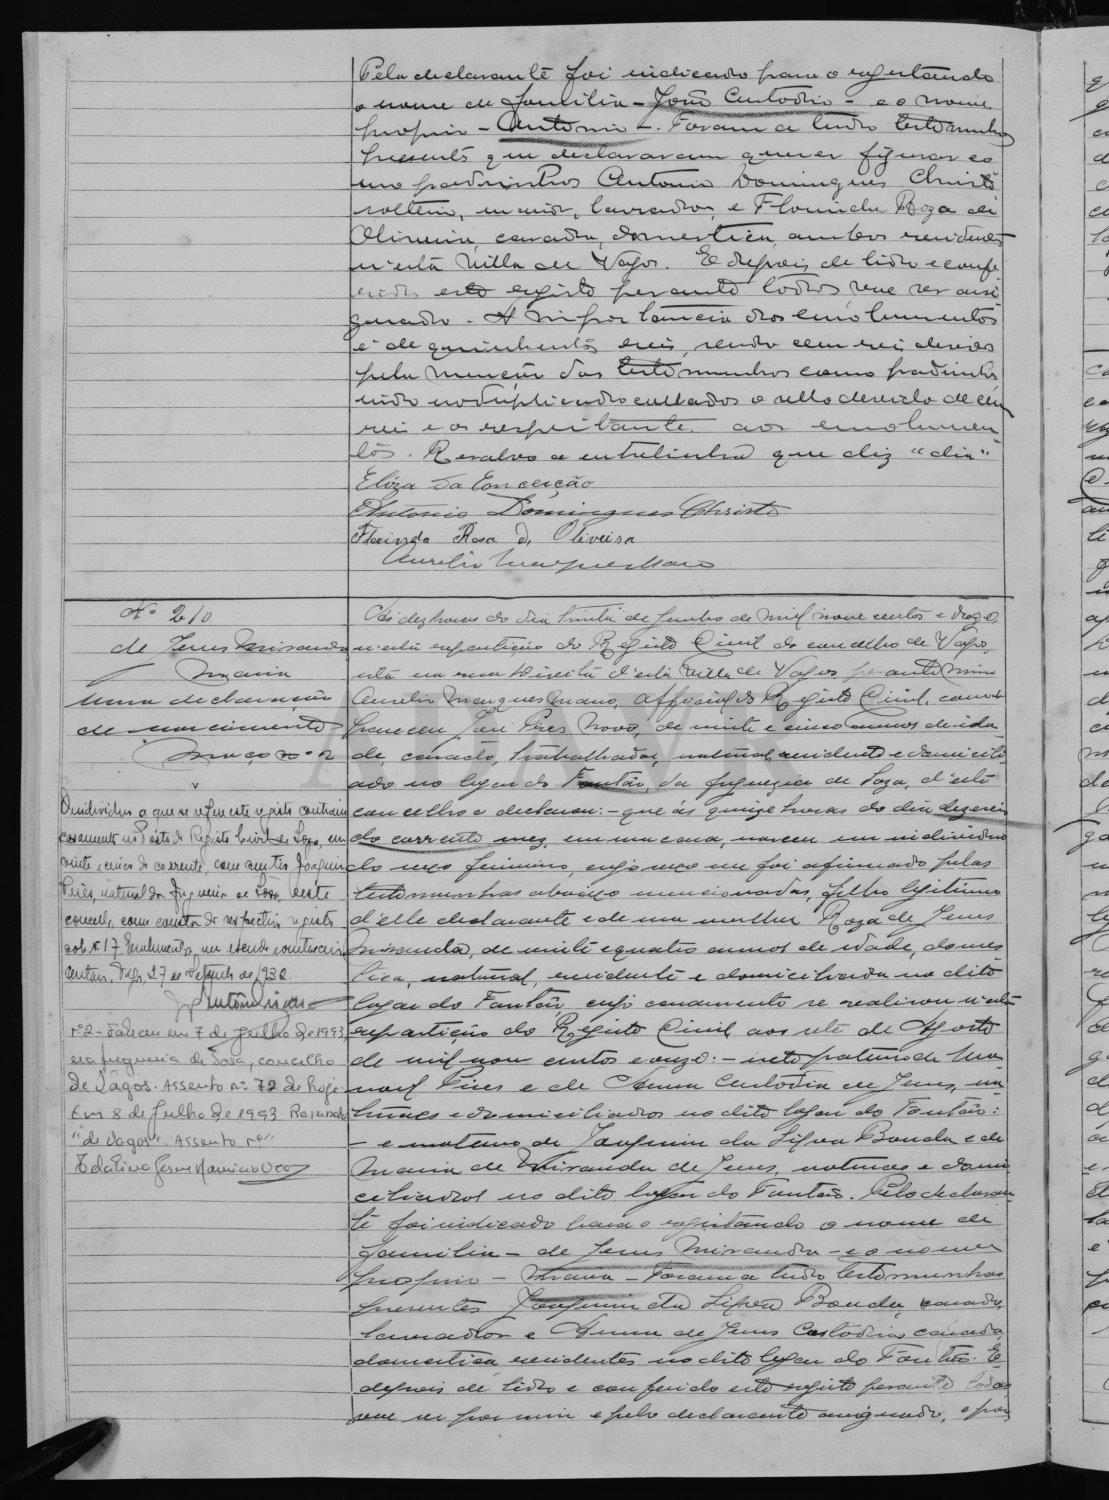 Pelo declarante foi indicado para o registando
o nome de familia - João Custodio - e o nome
proprio - Antonio -. Foram a tudo testemunhas
presentes que declararam querer figurar co
mo padrinhos Antonio Domingues Christo
solteiro, maior, lavrador, e Florinda Roza de
Oliveira, casada, domestica, ambos residentes
n'esta Villa de Vagos. E depois de lido e confe
rido este registo perante todos vae ser assi
gnado. A importancia dos emolumentos
é de quinhentos reis, sendo cem reis devidos
pela menção das testemunhas como padrinhos
indo no duplicado collados o sello devido de cem
reis e os respeitante aos emolumen
tos. Resalvo a entrelinha que diz "dia"
Eliza da Conceição
Antonio Domingues Christo
Florinda Rosa de Oliveira
Aurelio Marques Mano
Nº 210
de Jesus Miranda
Maria
Uma declaração
de nascimento
Maço nº 2
O individuo a que se refere este registo contraiu
casamento no Posto do Registo Civil de Soza, em
vinte e cinco do corrente, com Joaquim
Pires, natural da freguesia de Soza, deste
concelho, como consta do respectivo registo
sob nº 17
Vagos, 27 de Setembro de 1932.
Nº 2 - Faleceu em 7 de Julho de 1993,
na freguesia de Sosa, concelho
de Vagos. Assento nº 72 de hoje.
Em 8 de Julho de 1993. Rasurado
"de Vagos". Assento nº"
Ás dez horas do dia trinta de Junho de mil nove centos e doze
n'esta repartição do Registo Civil do concelho de Vagos,
sita na rua Direita d'esta Villa de Vagos perante mim
Aurelio Marques Mano, Official do Registo Civil, com
pareceu José Pires Novo, de vinte e cinco annos de ida
de, casado, trabalhador, natural, residente e domicili
ado no logar do Fontão, da freguezia de Soza, d'este
concelho e declarou: - que ás quinze horas do dia dezaseis
do corrente mez, em sua casa, nasceu um individuo
do sexo feminino, cujo sexo me foi afirmado pelas
testemunhas abaixo mencionadas, filho legitimo
d'elle declarante e de sua mulher Roza de Jesus
Miranda, de vinte e quatro annos de idade, domes
tica, natural, residente e domiciliada no dito
logar do Fontão, cujo casamento se realisou n'esta
repartição do Registo Civil aos sete de Agosto
de mil nove centos e onze: - neto paterno de Ma
noel Pires e de Anna Custodia de Jesus, na
turaes e domiciliados no dito logar do Fontão:
- e materno de Joaquim da Silva Bonda e de
Maria de Miranda de Jesus, naturaes e domi
ciliados no dito logar do Fontão. Pelo declaran
te foi indicado para o registando o nome de
familia - de Jesus Miranda - e o nome
proprio - Maria - Foram a tudo testemunhas
presentes Joaquim da Silva Bonda, casado,
lavrador e Anna de Jesus Custodia, casada,
domestica residentes no dito logar do Fontão. E
depois de lido e conferido este registo perante todos
vae ser por mim e pelo declarante assignado, e por